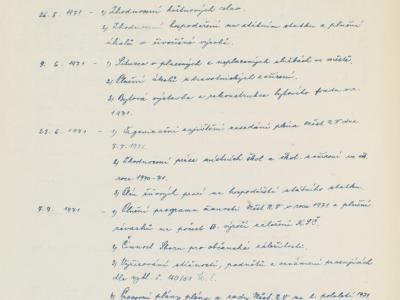 26. 5. 1971 - 1) Zhodnocení kulturových celno.
2) Zhodnocení hospodaření na státním statku a plnění
úkolů v živočišné výrobě.
9. 6. 1971 - 1) Situace v placených a neplacených službách ve městě.
2) Plnění úkolů zdravotnických zařízení.
3) Bytová výstavba a rekonstrukce bytového fondu v r.
1971.
23. 6. 1971 - 1) Organizační zajištění zasedání pléna Měst.N.V dne
7. 7. 1971.
2) Zhodnocení práce místních škol a škol. zařízení ve šk.
roce 1970-71.
3) žňových prací na hospodářství státního statku.
7. 7. 1971 - 1) Plnění programu činnosti Měst.N.V v roce 1971 a plnění
závazků na počest 50. výročí založení KSČ.
2) Činnost Sboru pro občanské záležitosti.
3) Vyřizování stížností, podnětů a oznámení pracujících
dle vyhl. č. 150/58 Ú.l.
4) Pracovní plány pléna a rady Měst.N.V na 2. pololetí 1971